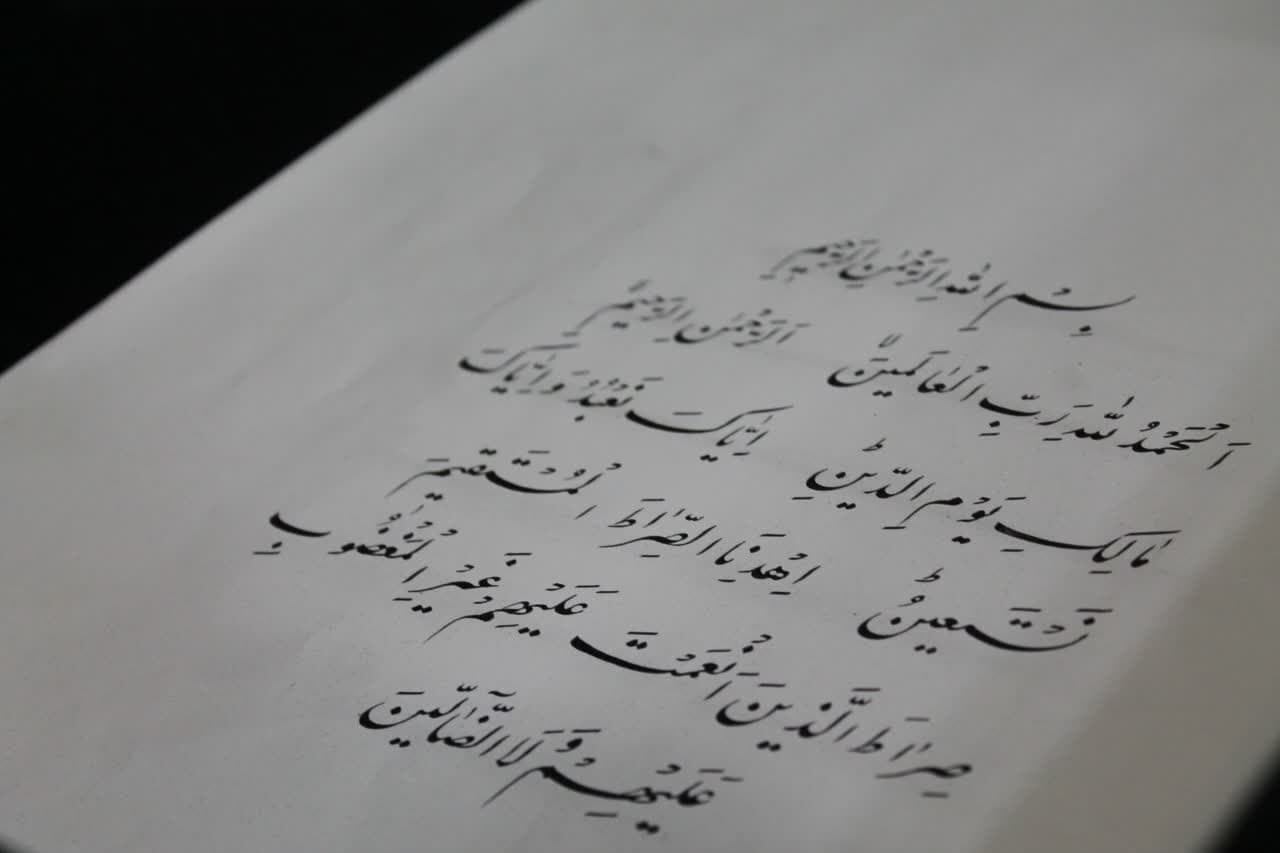 بِسْمِ اللهِ الرَّحْمٰنِ الرَّحِیمِ
اَلْحَمْدُ لِلّٰهِ رَبِّ الْعٰالَمینَ اَلرَّحْمٰنِ الرَّحیمِ
مٰالِكِ یَوْمِ الدّینِ اِیّٰاكَ نَعْبُدُ وَ اِیّٰاكَ
نَسْتَعینُ اِهْدِنَا الصِّرٰاطَ الْمُسْتَقیمَ
صِرٰاطَ الَّذینَ اَنْعَمْتَ عَلَیْهِمْ غَیْرِ الْمَغْضُوبِ
عَلَیْهِمْ وَلَا الضّٰٓالّینَ